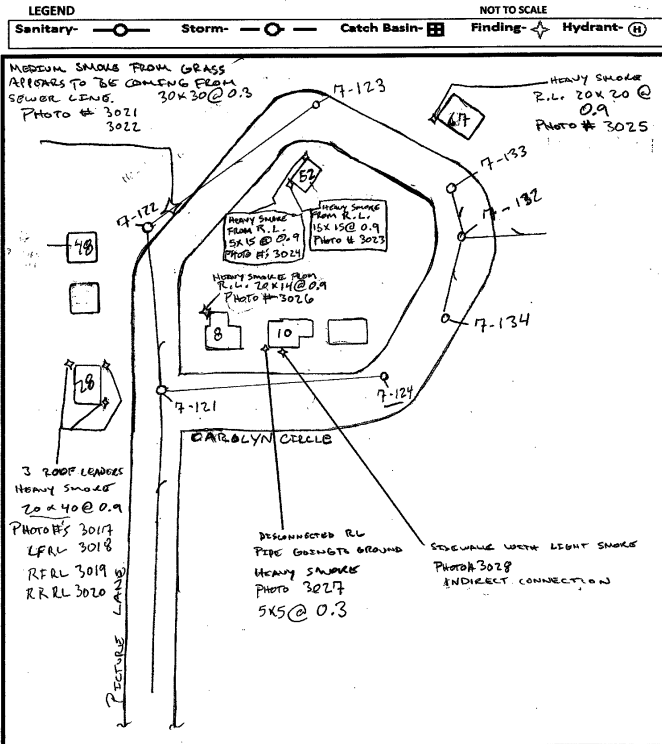 LEGEND
NOT TO SCALE
Sanitary-
Storm-
Catch Basin-
Finding-
Hydrant- H
MEDIUM SMOKE FROM GRASS
APPEARS TO BE COMING FROM
SEWER LINE. 30x30@0.3
PHOTO # 3021
3022
7-123
HEAVY SMOKE
R.L. 20x20 @
0.9
PHOTO # 3025
67
7-133
7-132
7-122
52
HEAVY SMOKE
FROM R.L.
5x15 @ 0.9
PHOTO #'s 3024
HEAVY SMOKE
FROM R.L.
15x15@ 0.9
PHOTO # 3023
48
HEAVY SMOKE FROM
R.L. 20x14@0.9
PHOTO # 3026
8
10
7-134
28
7-121
7-124
CAROLYN CIRCLE
3 ROOF LEADERS
HEAVY SMOKE
20 x 40 @ 0.9
PHOTO #'s 3017
LFRL 3018
RFRL 3019
RRRL 3020
DISCONNECTED RL
PIPE GOING TO GROUND
HEAVY SMOKE
PHOTO 3027
5x5@ 0.3
SIDEWALK WITH LIGHT SMOKE
PHOTO# 3028
INDIRECT CONNECTION
PICTURE LANE